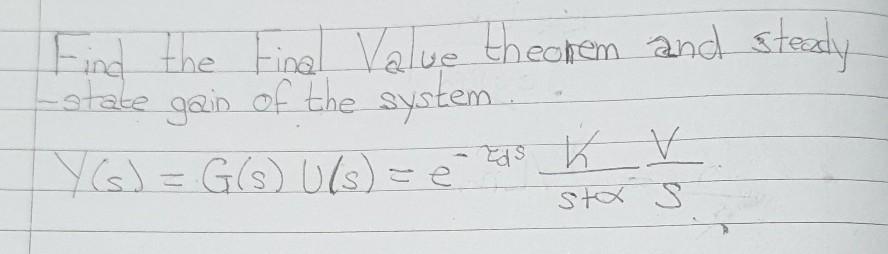 Find the Final Value theorem and steady
-state gain of the system.
Y(s) = G(s) U(s) = e^{-τds} \frac{K}{s+α} \frac{V}{S}.